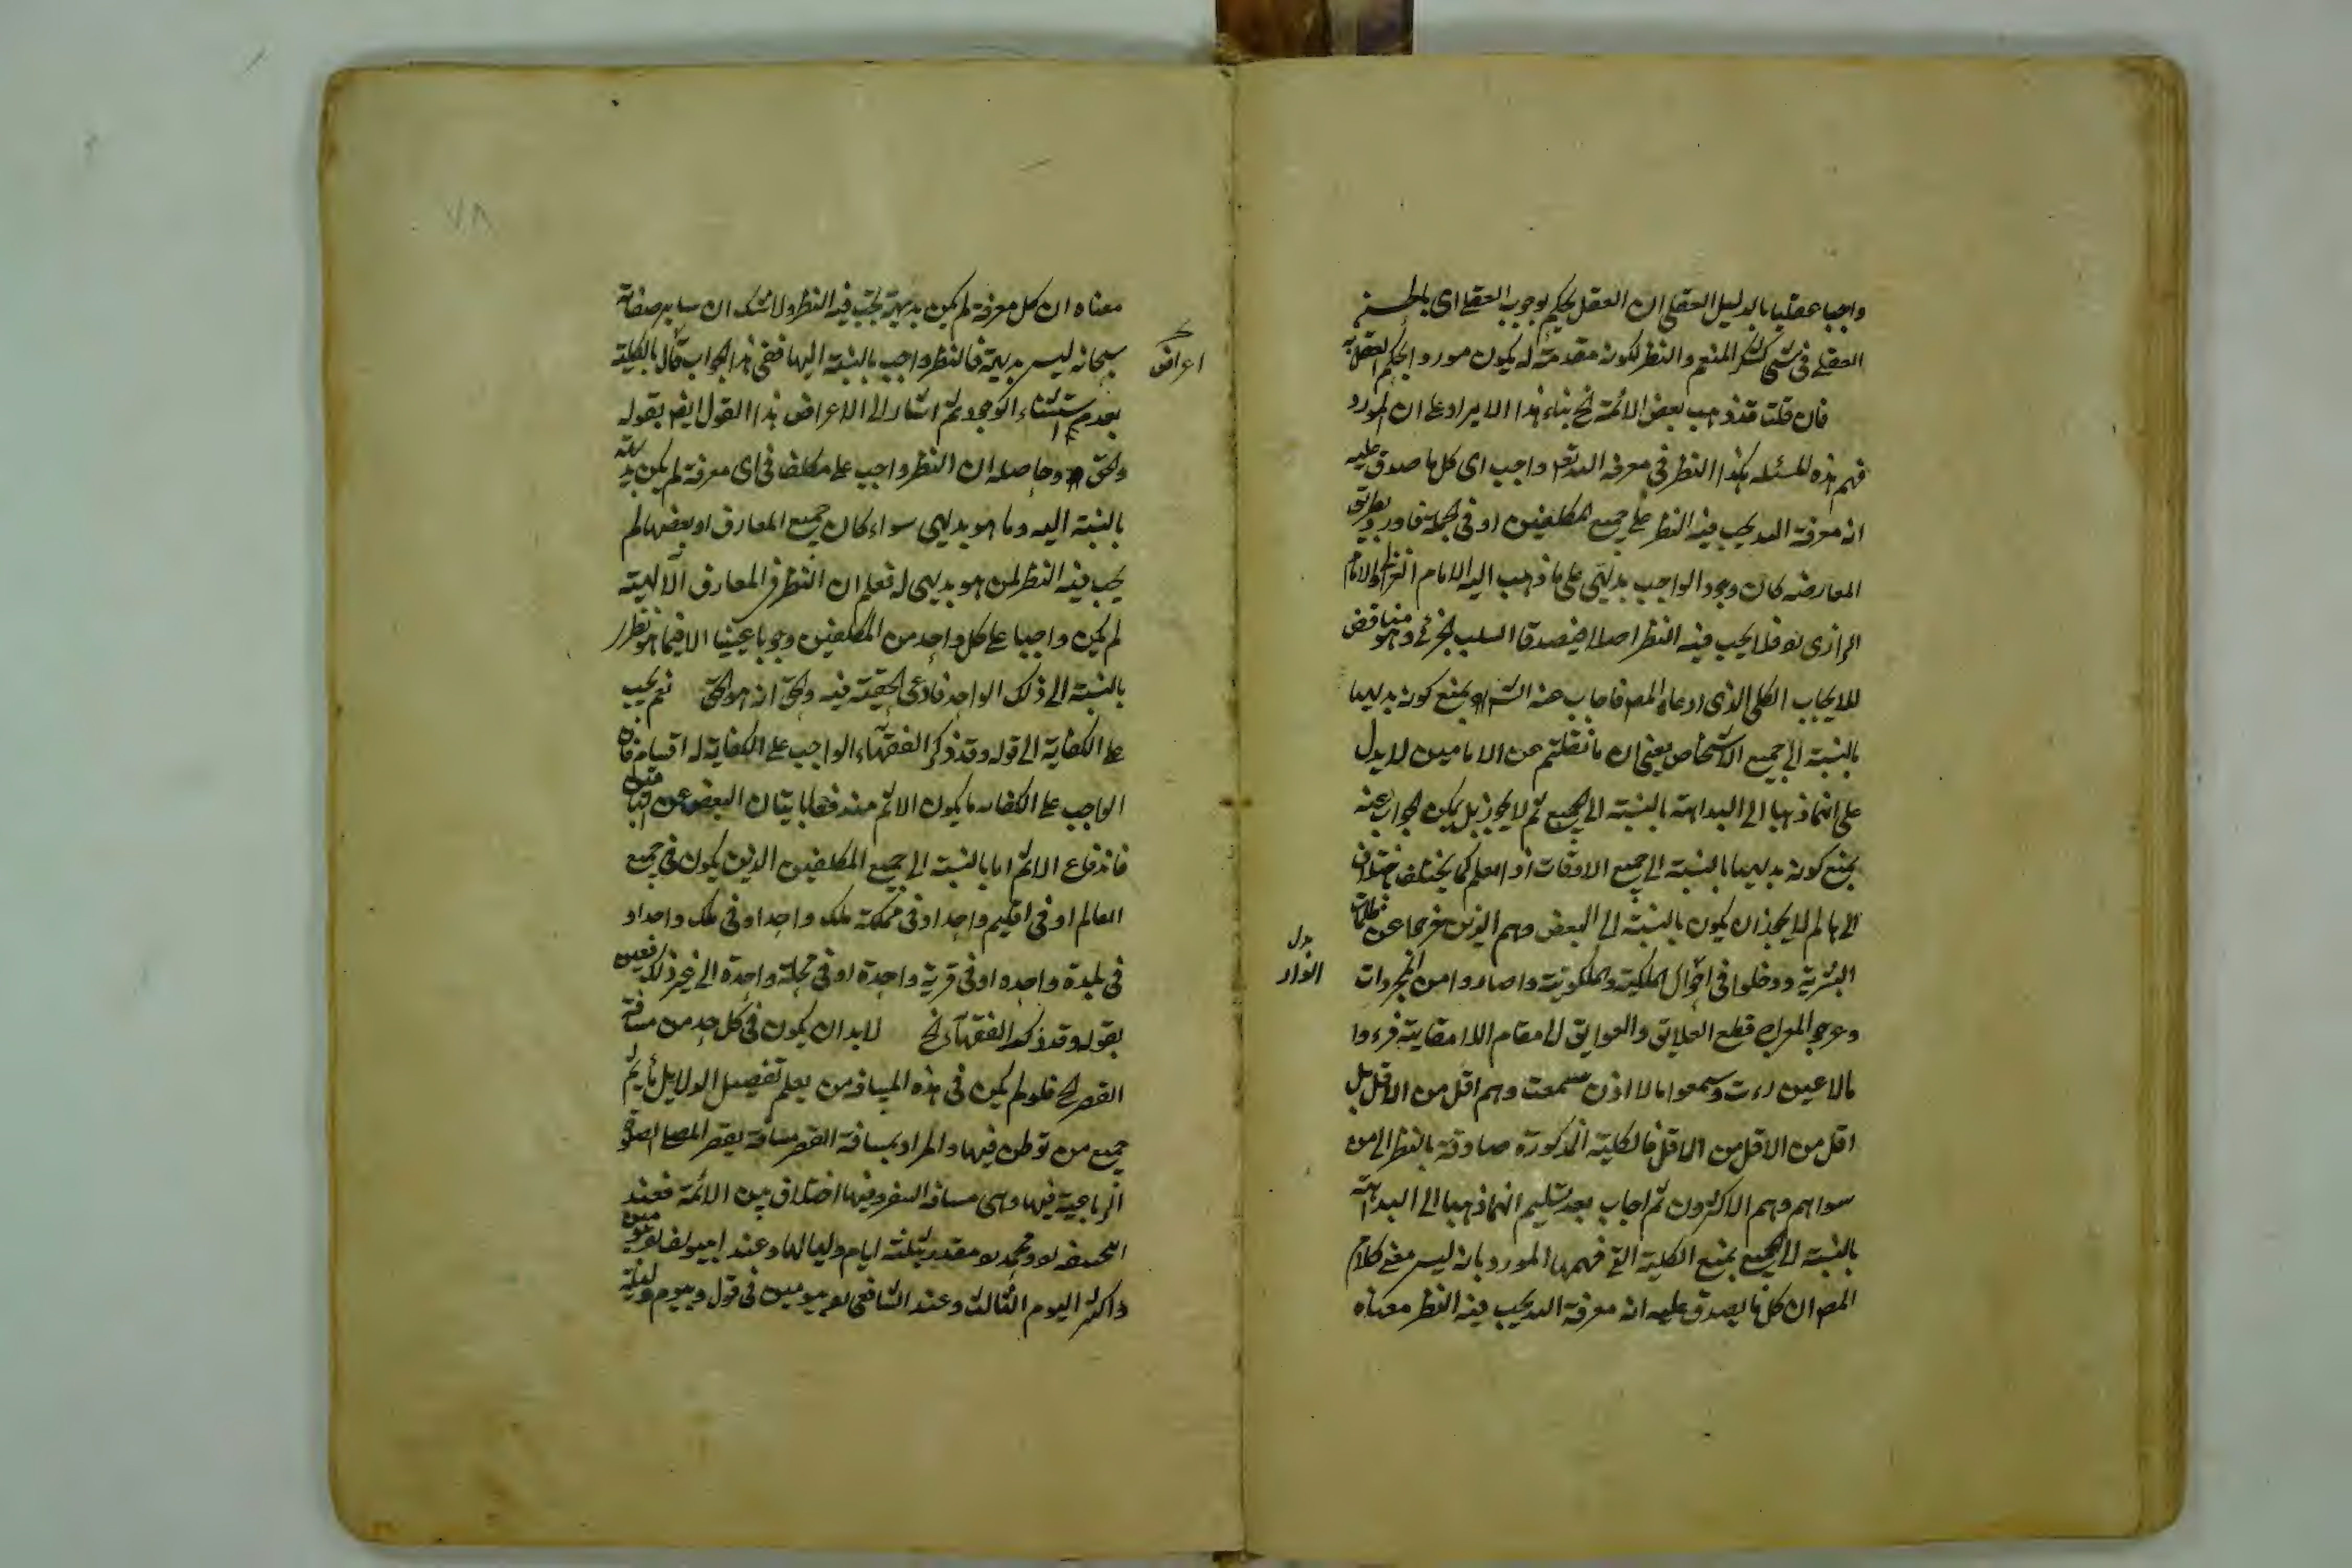 واجبا عقليا بالدليل العقلي ان العقل يحكم بوجوب العقلي اى
العقلي فى شكر المنعم والنظر لكونه مقدمة له يكون مورد الحكم العقل به
فان قلت قد ذهب بعض الائمة الخ بناء هذا الايراد على ان المورد
فهم هذه المسئلة هكذا النظر فى معرفة الله تعم واجب اى كل ما صدق عليه
انه معرفة الله يجب فيه النظر على جميع المكلفين او فى الجملة بطريق
المعارضة كان وجود الواجب بديهى على ما ذهب اليه الامام الغزالى والامام
الرازى فلا يجب فيه النظر اصلا فيصدق السلب الجزئى وهو مناقض
للايجاب الكلى الذى ادعاه المص فاجاب عنه الش بمنع كونه بديهيا
بالنسبة الى جميع الاشخاص يعنى ان ما نقلتم عن الامامين لا يدل
على انهما ذهبا الى البداهة بالنسبة الى الجميع لم لا يجوز بل يمكن الجواب عنه
بمنع كونه بديهيا بالنسبة الى جميع الاوقات
لم لا يجوز ان يكون بالنسبة الى البعض وهم الذين خرجوا عن ظلمات
البشرية ودخلوا فى احوال الملكية والملكوتية وصاروا من المجردات
بدل
انوار
قطع العلايق والعوايق الى مقام
مالا عين رات وسمعوا ما لا اذن سمعت وهم اقل من الاقل بل
اقل من الاقل من الاقل فالكلية المذكورة صادقة بالنظر الى من
سواهم وهم الاكثرون ثم اجاب بعد تسليم انهما ذهبا الى البداهة
بالنسبة الى الجميع بمنع الكلية التى فهمها المورد بانه ليس معنى كلام
المص ان كل ما يصدق عليه انه معرفة الله يجب فيه النظر معناه
٧٨
معناه ان كل معرفة لم يكن بديهية يجب فيه النظر ولا شك ان ساير صفاته
سبحانه ليس بديهية فالنظر واجب بالنسبة اليها ففى هذا الجواب قال بالكلية
اعراض
بعدم استثناء الوجود ثم اشار الى الاعراض هذا القول ايض بقوله
والحق وحاصله ان النظر واجب على مكلف فى اى معرفة لم يكن بديهية
بالنسبة اليه وما هو بديهى سواء كان جميع المعارف او بعضها لم
يجب فيه النظر لمن هو بديهى له فعلم ان النظر فى المعارف الآلهية
لم يكن واجبا على كل واحد من المكلفين وجوبا عينيا الا فيما هو نظرى
بالنسبة الى ذلك الواحد فادعى الحقية فيه والحق انه هو الحق نعم يجب
على الكفاية الى قوله وقد ذكر الفقهاء الواجب على الكفاية له اقسام فان
الواجب على الكفاية ما يكون الاثم مندفعا باتيان البعض عن
فاندفاع الاثم اما بالنسبة الى جميع المكلفين الذين يكون فى جميع
العالم او فى اقليم واحد او فى مملكة ملك واحد او فى ملك واحد او
فى بلدة واحده او فى قرية واحدة او فى محلة واحدة الى غير ذلك فعين
بقوله وقد ذكر الفقهآء الخ لا بد ان يكون فى كل حد من مسافة
القصر الخ فلو لم يكن فى هذه المسافة من يعلم تفصيل الدلايل ياثم
جميع من توطن فيها والمراد بمسافة القصر مسافة يقصر المصلى الصلوة
الرباعية فيها وهى مسافة السفر وفيها اختلاف بين الائمة فعند
ابيحنيفه ومحمد مقدر بثلثة ايام ولياليها وعند ابيوسف يومين
واكثر اليوم الثالث وعند الشافعى يومين فى قول وبيوم وليلة